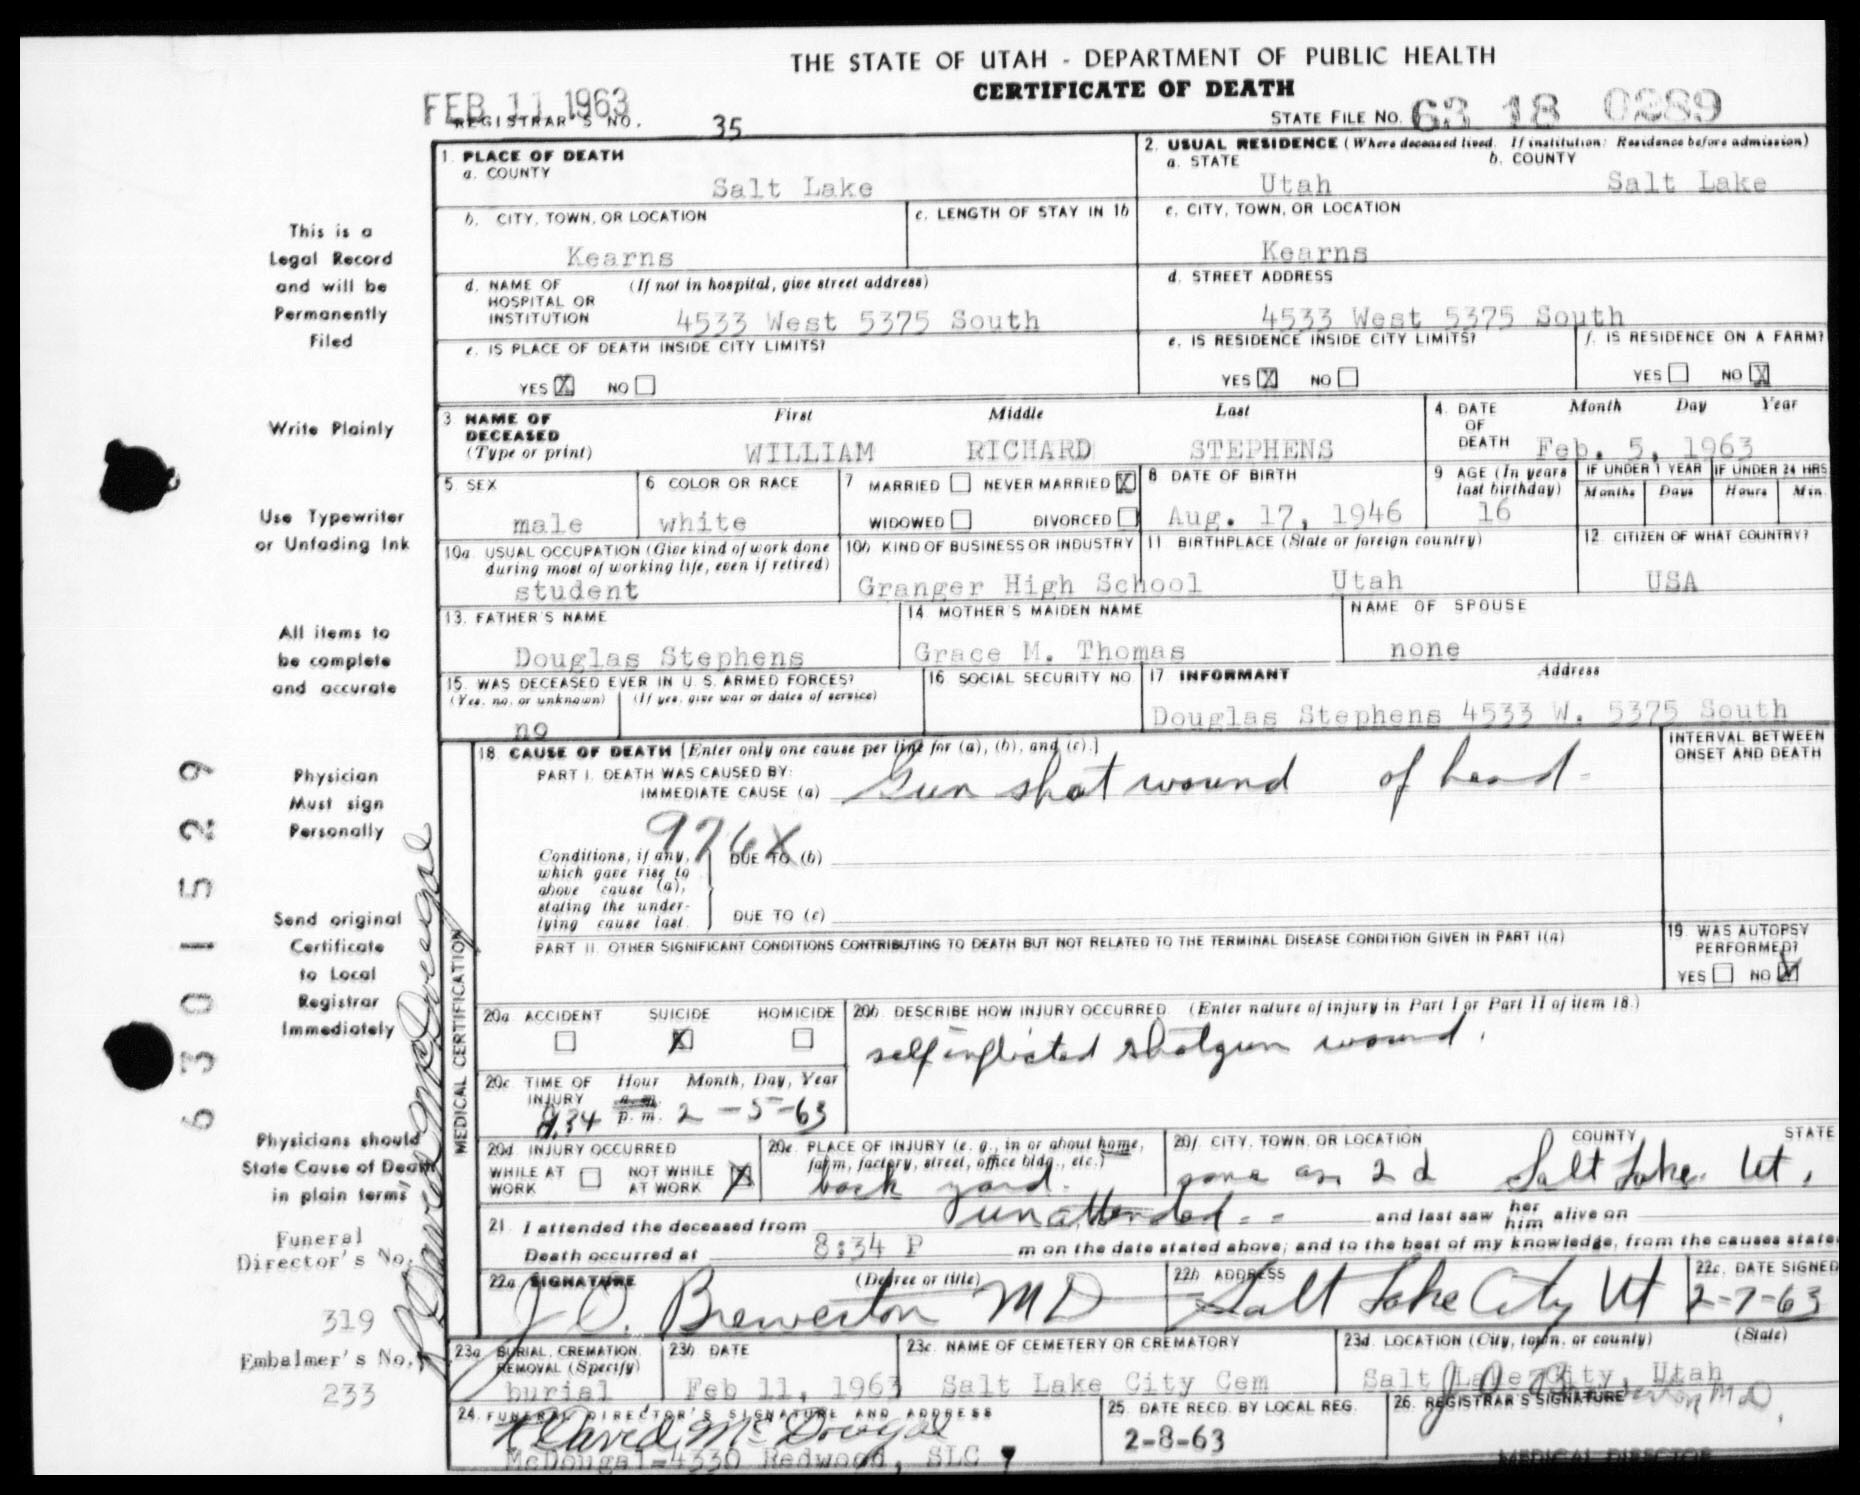 THE STATE OF UTAH - DEPARTMENT OF PUBLIC HEALTH
CERTIFICATE OF DEATH
FEB 11 1963
REGISTRAR'S NO. 35
STATE FILE NO. 63 18 0289
This is a
Legal Record
and will be
Permanently
Filed
Write Plainly
Use Typewriter
or Unfading Ink
All items to
be complete
and accurate
Physician
Must sign
Personally
Send original
Certificate
to Local
Registrar
Immediately
Physicians should
State Cause of Death
in plain terms
Funeral
Director's No.
319
Embalmer's No.
233
63 01529
R David McDougal
1. PLACE OF DEATH
a. COUNTY
Salt Lake
2. USUAL RESIDENCE (Where deceased lived. If institution: Residence before admission)
a. STATE b. COUNTY
Utah Salt Lake
b. CITY, TOWN, OR LOCATION
Kearns
c. LENGTH OF STAY IN 1b
c. CITY, TOWN, OR LOCATION
Kearns
d. NAME OF HOSPITAL OR INSTITUTION (If not in hospital, give street address)
4533 West 5375 South
d. STREET ADDRESS
4533 West 5375 South
e. IS PLACE OF DEATH INSIDE CITY LIMITS?
YES X NO
e. IS RESIDENCE INSIDE CITY LIMITS?
YES X NO
f. IS RESIDENCE ON A FARM?
YES NO X
3 NAME OF DECEASED (Type or print)
First Middle Last
WILLIAM RICHARD STEPHENS
4. DATE OF DEATH Month Day Year
Feb. 5, 1963
5. SEX
male
6 COLOR OR RACE
white
7 MARRIED NEVER MARRIED X
WIDOWED DIVORCED
8 DATE OF BIRTH
Aug. 17, 1946
9 AGE (In years last birthday)
16
IF UNDER 1 YEAR
Months Days
IF UNDER 24 HRS
Hours Min.
10a USUAL OCCUPATION (Give kind of work done during most of working life, even if retired)
student
10b KIND OF BUSINESS OR INDUSTRY
Granger High School
11 BIRTHPLACE (State or foreign country)
Utah
12. CITIZEN OF WHAT COUNTRY?
USA
13. FATHER'S NAME
Douglas Stephens
14. MOTHER'S MAIDEN NAME
Grace M. Thomas
NAME OF SPOUSE
none
15. WAS DECEASED EVER IN U.S. ARMED FORCES?
(Yes, no, or unknown) (If yes, give war or dates of service)
no
16 SOCIAL SECURITY NO
17 INFORMANT Address
Douglas Stephens 4533 W. 5375 South
MEDICAL CERTIFICATION
18. CAUSE OF DEATH [Enter only one cause per line for (a), (b), and (c).]
INTERVAL BETWEEN ONSET AND DEATH
PART I. DEATH WAS CAUSED BY:
IMMEDIATE CAUSE (a) Gun shot wound of head-
976X
Conditions, if any, which gave rise to above cause (a), stating the underlying cause last.
DUE TO (b)
DUE TO (c)
PART II. OTHER SIGNIFICANT CONDITIONS CONTRIBUTING TO DEATH BUT NOT RELATED TO THE TERMINAL DISEASE CONDITION GIVEN IN PART I(a)
19. WAS AUTOPSY PERFORMED?
YES NO X
20a. ACCIDENT SUICIDE HOMICIDE
X
20b. DESCRIBE HOW INJURY OCCURRED (Enter nature of injury in Part I or Part II of item 18.)
self inflicted shotgun wound.
20c TIME OF INJURY Hour Month, Day, Year
8.34 a.m. p.m. 2-5-63
20d INJURY OCCURRED
WHILE AT WORK NOT WHILE AT WORK X
20e. PLACE OF INJURY (e. g., in or about home, farm, factory, street, office bldg., etc.)
back yard.
20f. CITY, TOWN, OR LOCATION COUNTY STATE
same as 2 d Salt Lake. Ut.
21. I attended the deceased from unattended -- and last saw her him alive on
Death occurred at 8:34 P m on the date stated above; and to the best of my knowledge, from the causes state
22a SIGNATURE (Degree or title)
J. O. Brewerton MD
22b ADDRESS
Salt Lake City Ut
22c. DATE SIGNED
2-7-63
23a BURIAL, CREMATION, REMOVAL (Specify)
burial
23b DATE
Feb 11, 1963
23c. NAME OF CEMETERY OR CREMATORY
Salt Lake City Cem
23d. LOCATION (City, town, or county) (State)
Salt Lake City, Utah
24. FUNERAL DIRECTOR'S SIGNATURE AND ADDRESS
R David McDougal
McDougal-4330 Redwood, SLC
25. DATE RECD. BY LOCAL REG.
2-8-63
26. REGISTRAR'S SIGNATURE
MEDICAL DIRECTOR